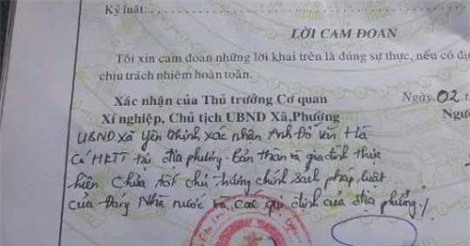 Kỷ luật:
LỜI CAM ĐOAN
Tôi xin cam đoan những lời khai trên là đúng sự thực, nếu có đi
chịu trách nhiệm hoàn toàn.
Xác nhận của Thủ trưởng Cơ quan
Ngày 02 t
Xí nghiệp, Chủ tịch UBND Xã,Phường
Ngườ
UBND xã Yên Chính xác nhận Anh Đỗ Văn Hà
Có HKTT tại địa phương. Bản thân và gia đình thực
hiện chưa tốt chủ trương chính sách pháp luật
của Đảng Nhà nước và các quy định của địa phương./